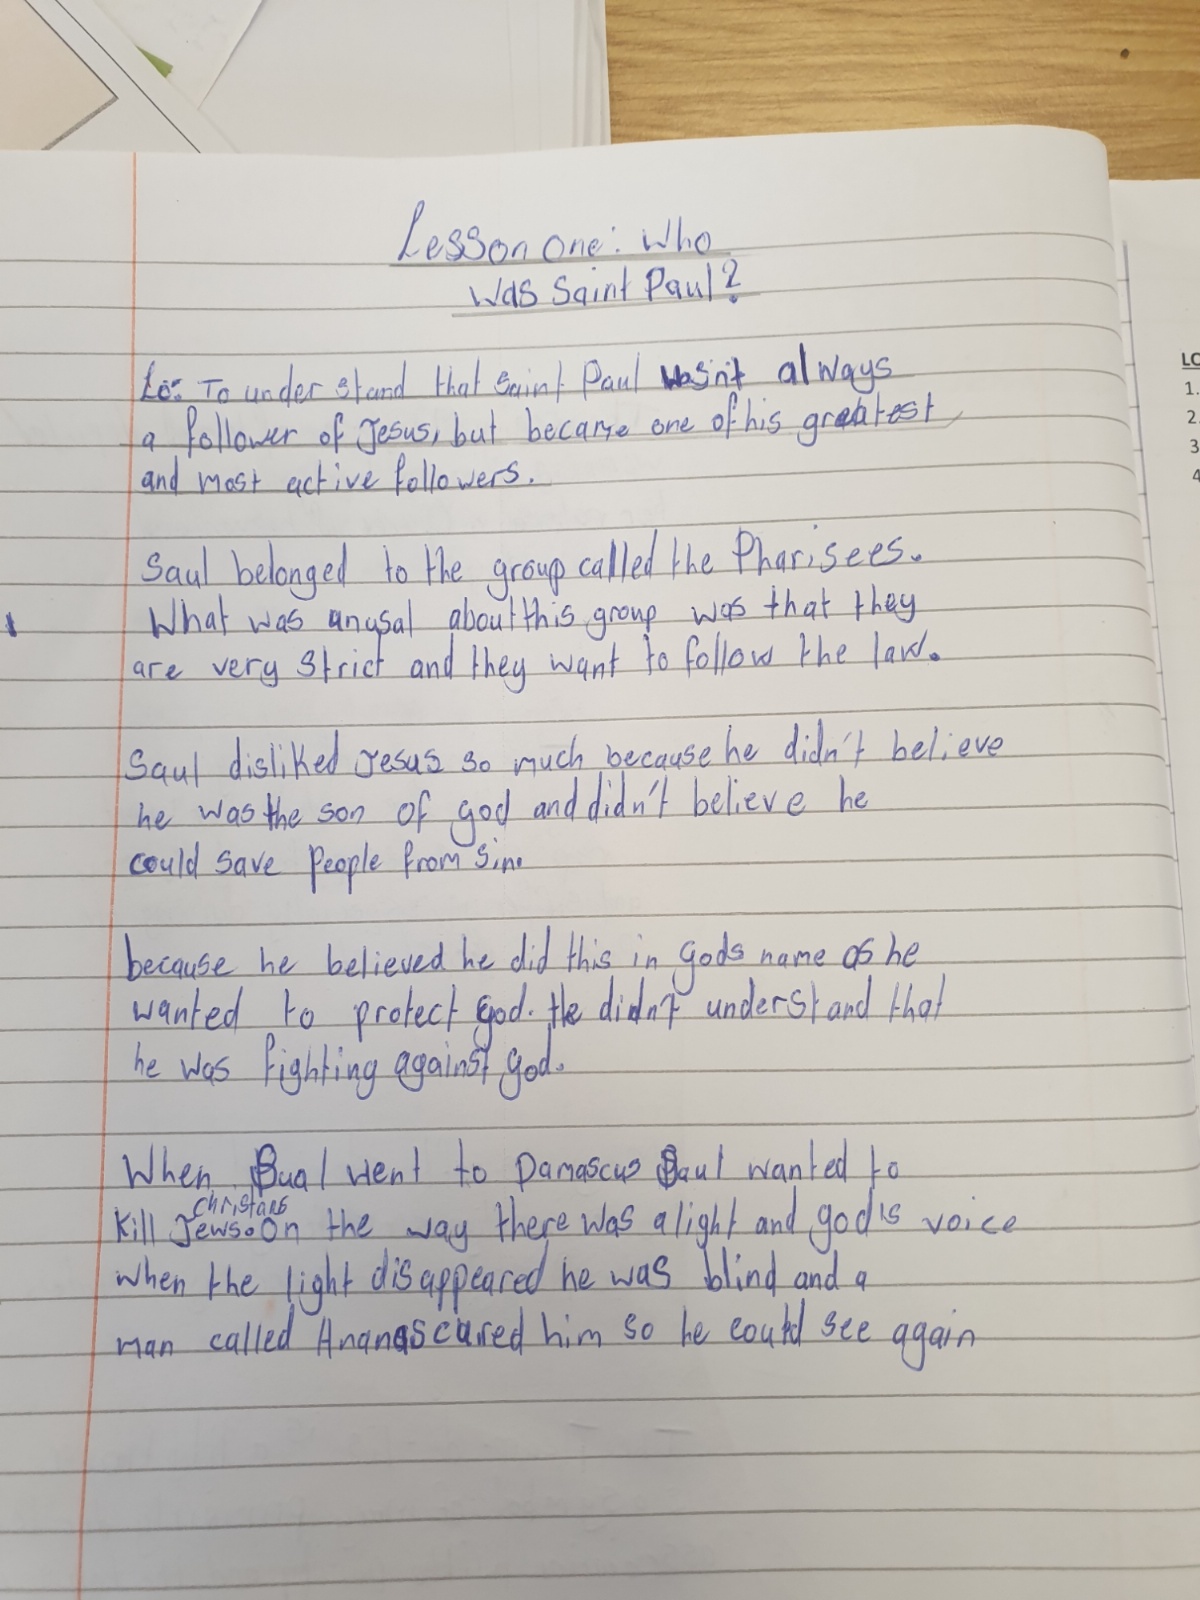 Lesson one: Who
Was Saint Paul?
Lo: To understand that Saint Paul wasn't always
a follower of Jesus, but became one of his greatest
and most active followers.
Saul belonged to the group called the Pharisees.
What was unusal about this group was that they
are very strict and they want to follow the law.
Saul disliked Jesus so much because he didn't believe
he was the son of god and didn't believe he
could save people from sin.
because he believed he did this in gods name as he
wanted to protect god. He didn't understand that
he was fighting against god.
When Saul went to Damascus Saul wanted to
christans
kill Jews. On the way there was a light and god's voice
when the light disappeared he was blind and a
man called Ananas cured him so he could see again
LO
1.
2.
3
4